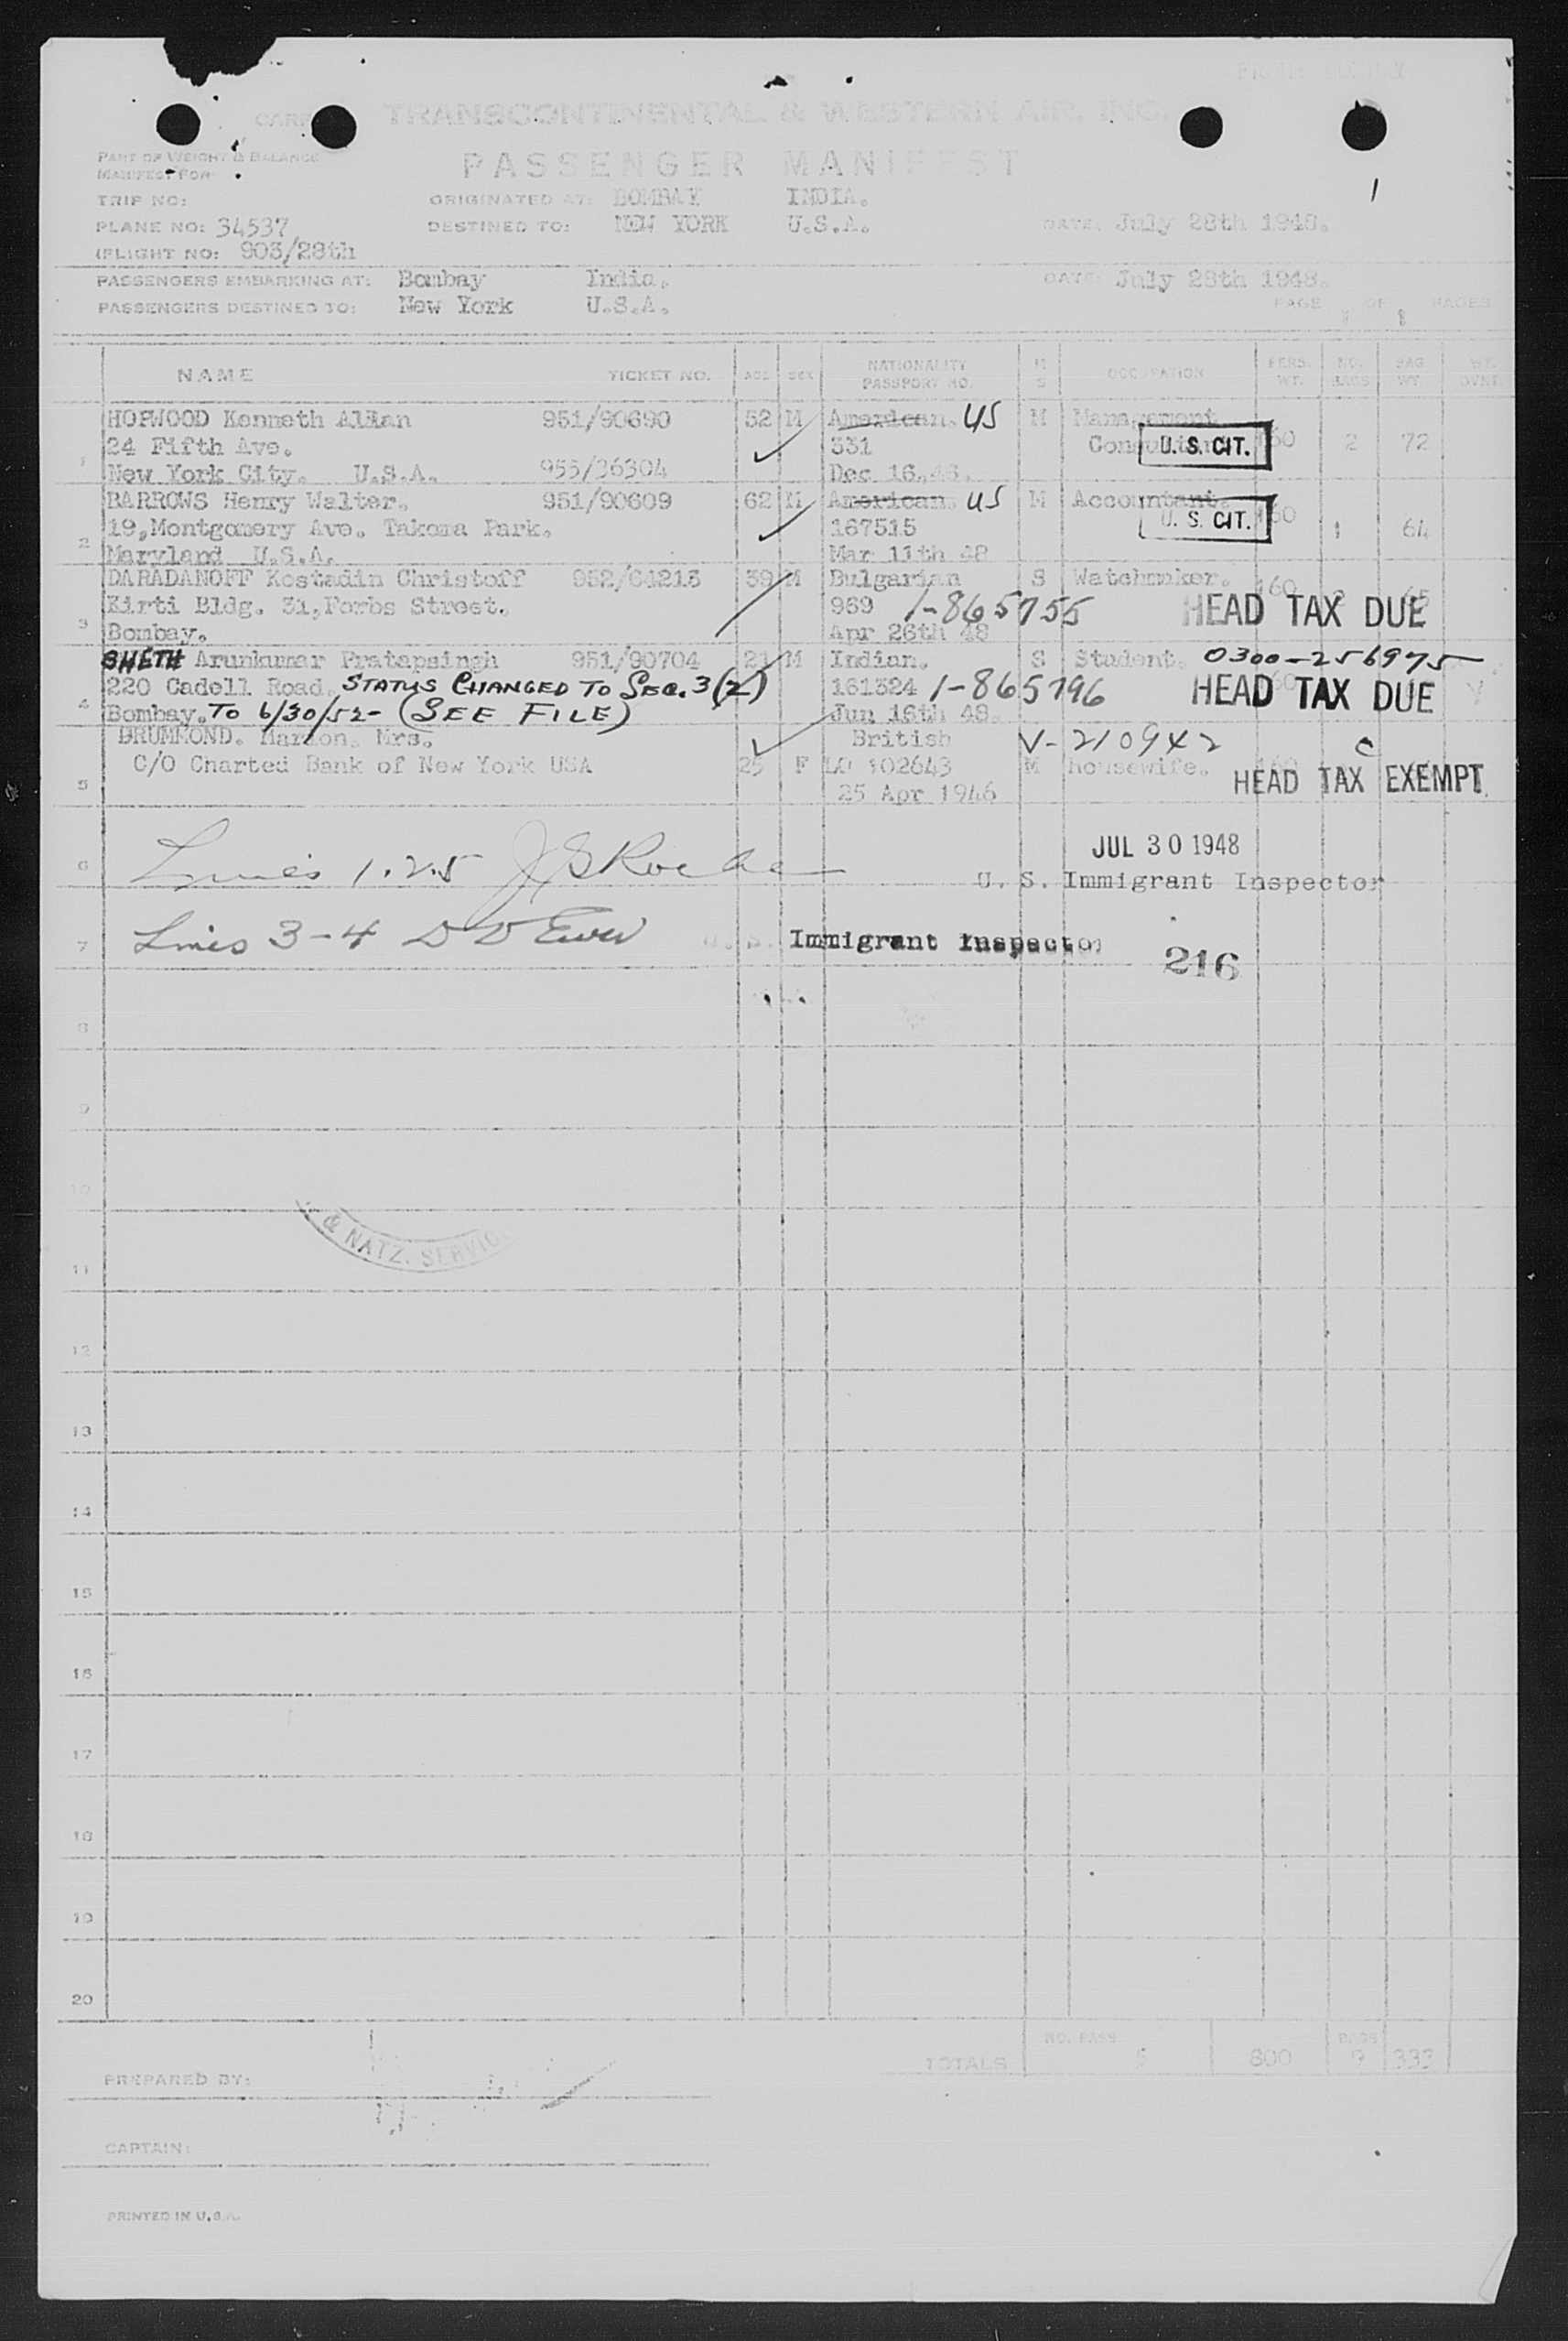 TRANSCONTINENTAL & WESTERN AIR, INC.
PART OF WEIGHT & BALANCE
MANIFEST FOR
PASSENGER MANIFEST
1
TRIP NO:
ORIGINATED AT: BOMBAY INDIA.
PLANE NO: 34537
DESTINED TO: NEW YORK U.S.A.
DATE: July 28th 1948.
FLIGHT NO: 903/28th
PASSENGERS EMBARKING AT: Bombay India.
DATE: July 28th 1948.
PASSENGERS DESTINED TO: New York U.S.A.
PAGE 1 OF 1 PAGES
NAME TICKET NO. AGE SEX NATIONALITY PASSPORT NO. M S OCCUPATION PERS. WT. NO. BAGS BAG WT.
1 HOPWOOD Kenneth Allan 951/90690 52 M American. US M Management
24 Fifth Ave. 331 U.S. CIT. 2 72
New York City. U.S.A. 953/36304 Dec 16.46.
2 BARROWS Henry Walter. 951/90609 62 M American US M Accountant.
19,Montgomery Ave. Takoma Park. 167515 U. S. CIT. 1 64
Maryland U.S.A. Mar 11th 48
3 DARADANOFF Kostadin Christoff 952/64213 39 M Bulgarian S Watchmaker. 160
Kirti Bldg. 31,Forbs Street. 969 1-865755 HEAD TAX DUE
Bombay. Apr 26th 48
4 SHETH Arunkumar Pratapsingh 951/90704 21 M Indian. S Student. 0300-256975
220 Cadell Road. STATUS CHANGED TO SEC. 3(2) 161324 1-865796 HEAD TAX DUE
Bombay. TO 6/30/52- (SEE FILE) Jun 16th 48.
5 DRUMMOND. Marion. Mrs. British V-210942 C
C/O Charted Bank of New York USA 25 F 102643 M housewife. HEAD TAX EXEMPT
25 Apr 1946
JUL 30 1948
6 Lines 1.2.5 U. S. Immigrant Inspector
7 Lines 3-4 U. S. Immigrant Inspector
216
8
9
10
& NATZ. SERVICE
11
12
13
14
15
16
17
18
19
20
TOTALS NO. PASS 5 800 BAGS 9 333
PREPARED BY:
CAPTAIN:
PRINTED IN U.S.A.